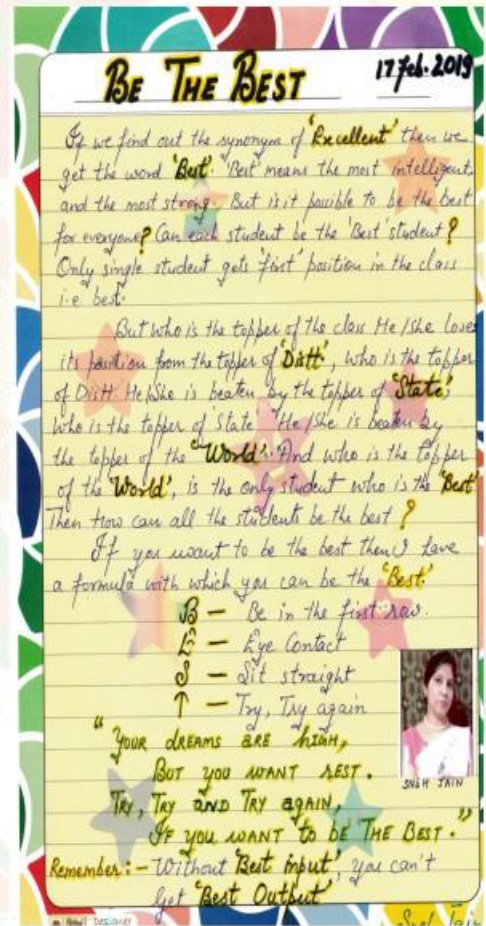 BE THE BEST
17 Feb. 2019
If we find out the synonym of 'Excellent' then we
get the word 'Best'. 'Best' means the most intelligent,
and the most strong. But is it possible to be the best
for everyone? Can each student be the 'Best' student?
Only single student gets 'first' position in the class
i.e best.
But who is the topper of the class He/She loses
its position from the topper of 'Distt.', who is the topper
of Distt. He/She is beaten by the topper of 'State',
who is the topper of 'State' He/She is beaten by
the topper of the 'World'. And who is the topper
of the 'World', is the only student who is the 'Best'
Then How can all the students be the best?
If you want to be the best then I have
a formula with which you can be the 'Best'
B — Be in the first row.
E — Eye Contact
S — Sit straight
T — Try, Try again
SNEH JAIN
"YOUR DREAMS ARE HIGH,
BUT YOU WANT REST.
TRY, TRY AND TRY AGAIN,
IF YOU WANT TO BE THE BEST."
Remember:- Without 'Best input', you can't
Get 'Best Output'
DESIGNER
Sneh Jain